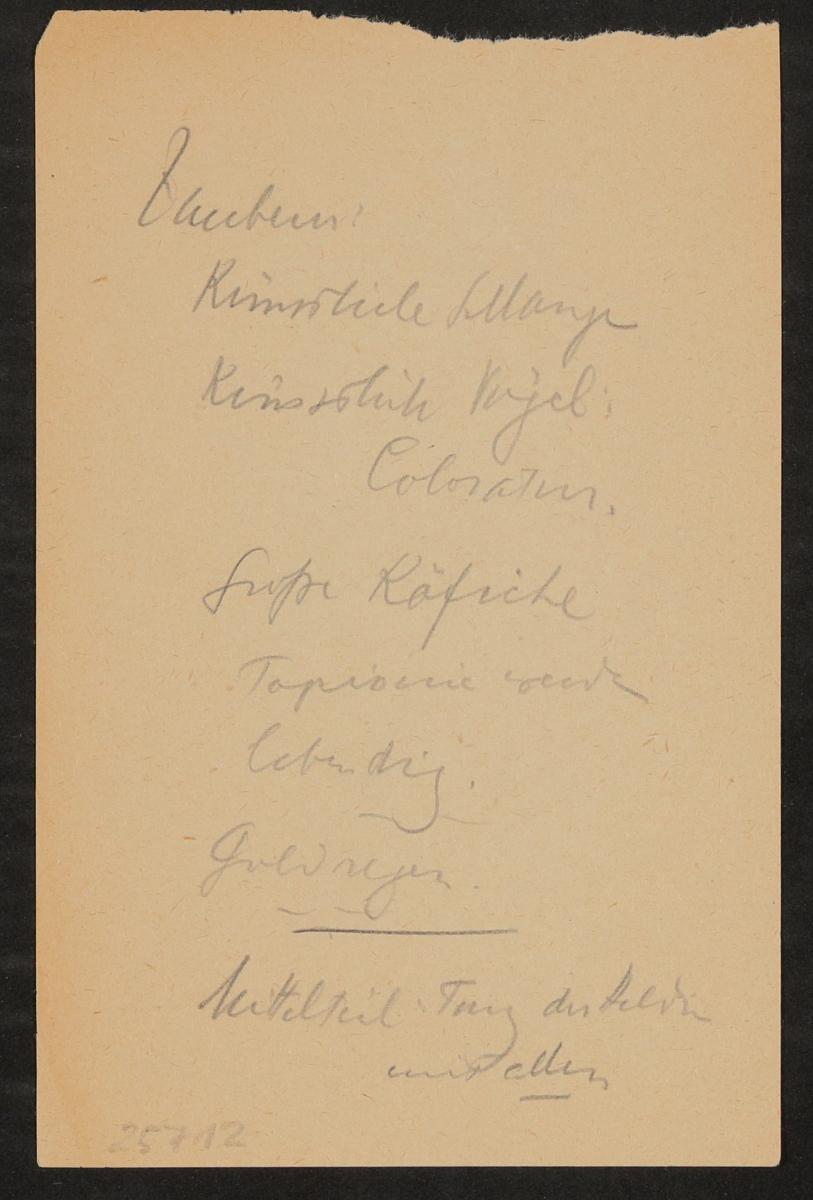 Zaubern:
Künstliche Schlange
Künstliche Vögel:
Coloratur.
Große Käfiche
Tapisserie werden
lebendig.
Goldregen.
Mittelteil: Tanz der Heldin
mit allen
25712